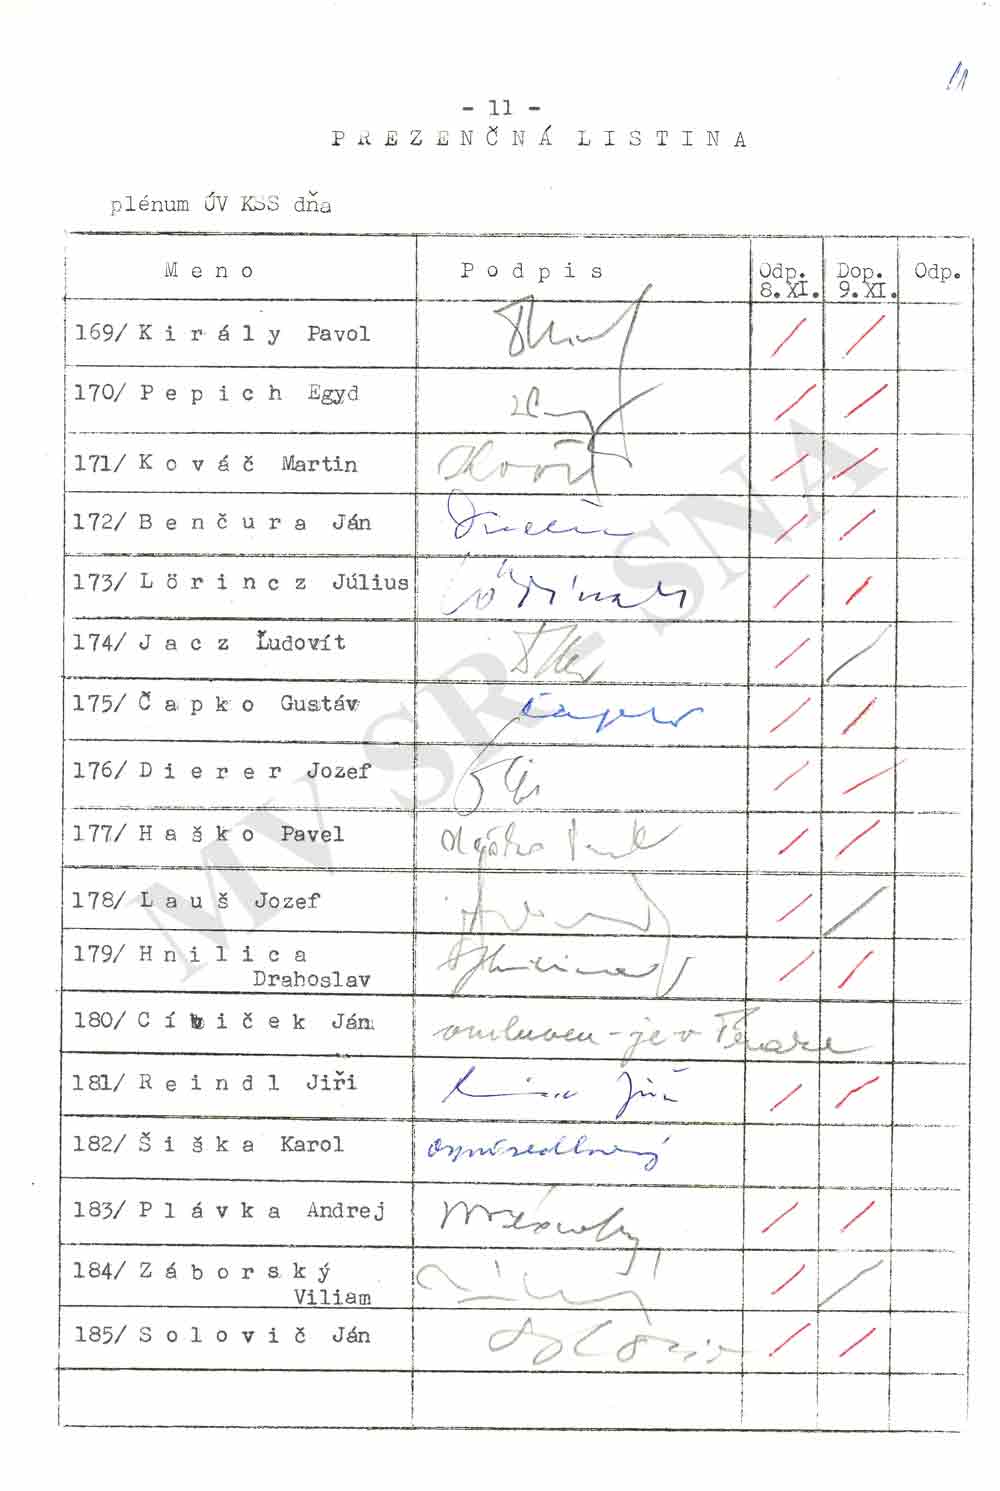 11
- 11 -
PREZENČNÁ LISTINA
plénum ÚV KSS dňa
Meno Podpis Odp. 8.XI. Dop. 9.XI. Odp.
169/ Király Pavol
170/ Pepich Egyd
171/ Kováč Martin
172/ Benčura Ján
173/ Lörincz Július
174/ Jacz Ľudovít
175/ Čapko Gustáv
176/ Dierer Jozef
177/ Haško Pavel
178/ Lauš Jozef
179/ Hnilica
Drahoslav
180/ Cíviček Ján omluven - je v
181/ Reindl Jiří Jiří
182/ Šiška Karol ospravedlnený
183/ Plávka Andrej
184/ Záborský
Viliam
185/ Solovič Ján
MV SR - SNA